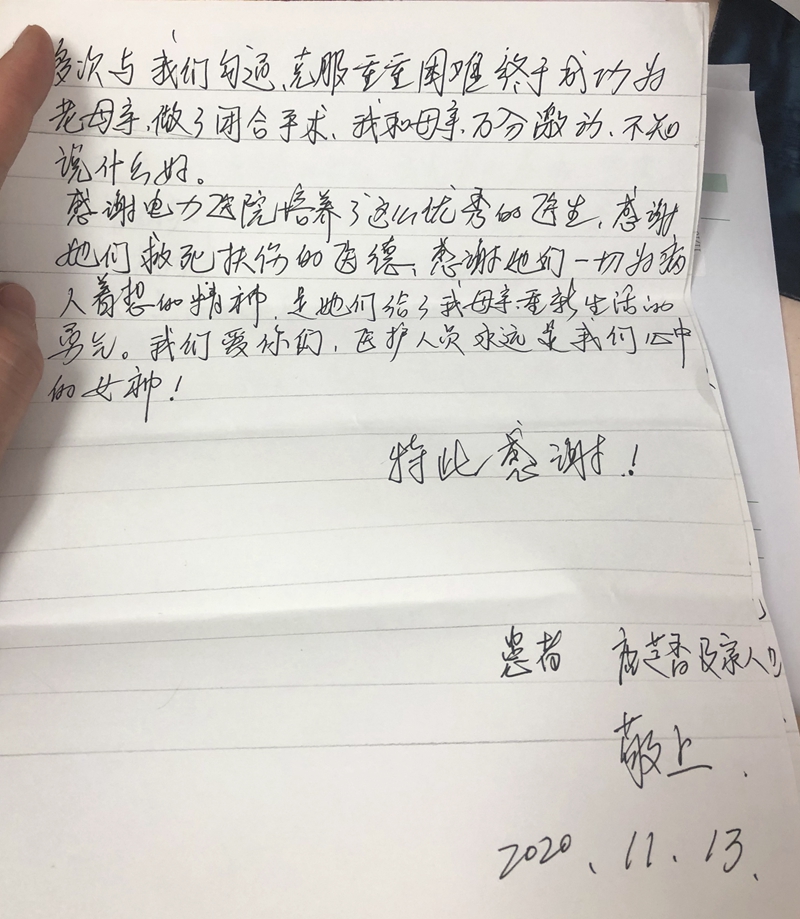 多次与我们勾通、克服重重困难终于成功为
老母亲、做了闭合手术、我和母亲、万分激动、不知
说什么好。
感谢电力医院培养了这么优秀的医生、感谢
她们救死扶伤的医德、感谢她们一切为病
人着想的精神、是她们给了我母亲重新生活的
勇气。我们爱你们、医护人员永远是我们心中
的女神！
特此感谢！
患者 芝香及家人
敬上.
2020.11.13.